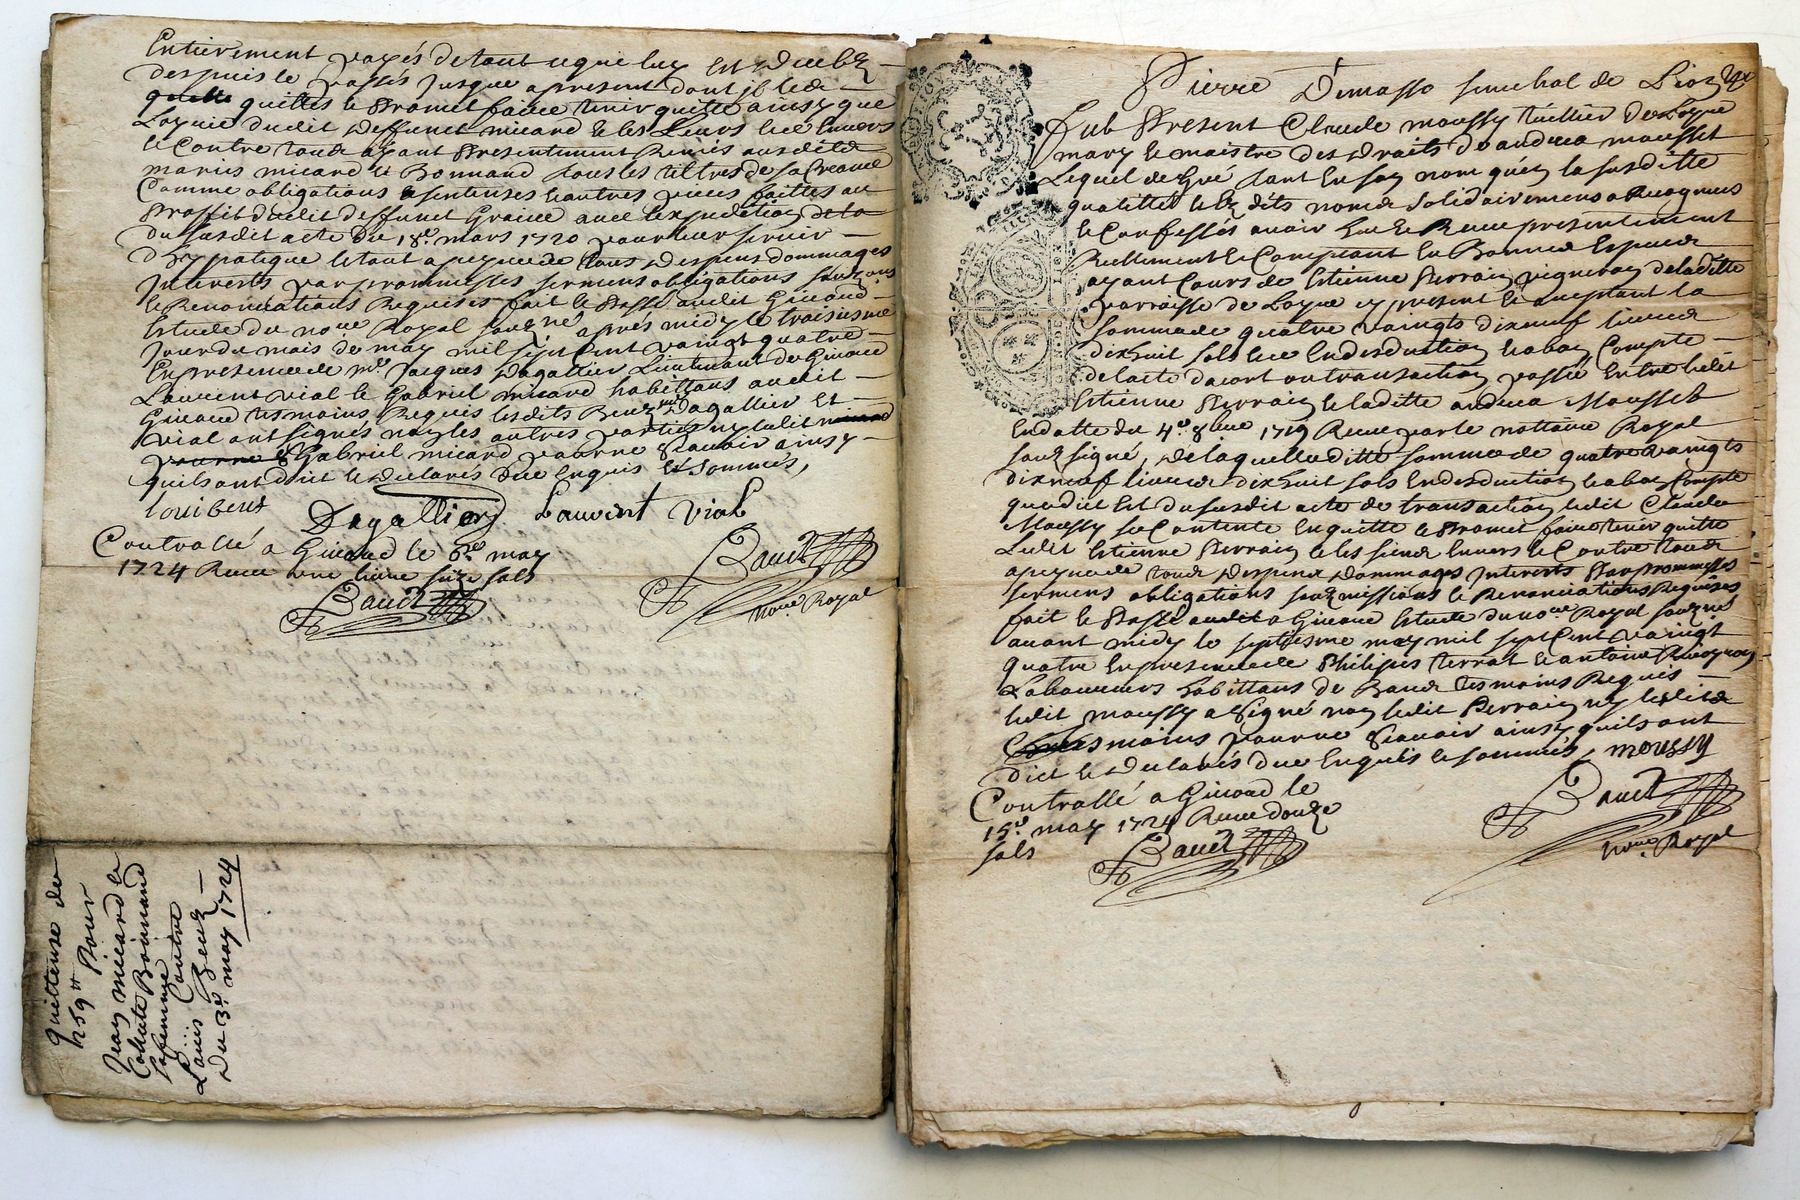 Entierement payés de tout ce que luy est dheub
despuis le passés jusque a present dont il le de
quitte quittes le promet faire tenir quitte ainsy que
dudit deffunct micard le les Leurs lice Envers
le Contre toude ayant presentement Remis ausdits
mariés micard le Bonnand tous les tiltres de sa Creance
Comme obligations sentenses le autres pieces faittes au
proffit dudit deffunct Graince avec l'expedition de la
du susdit acte du 18e. mars 1720 pour leur servir
d'ez pratique le tout a peyne de tous despens dommages
Interests par prommesses sermens obligations soubzons
le Renonciations Requises fait le passé audit Giraud
Estude du noire. Royal soubzné après midy le troisiesme
jour du mois de may mil sept cent vaingt quatre
En presence de me. Jacques Dagallier Lieutenant de Giraud
Laurent vial le Gabriel micard habittans audit
Giraud tesmoins Requis lesdits Dagallier et
vial ont signés non les autres parties ny ledit
pourne Gabriel micard pourne scavoir ainsy
quils ont dict le declarés Due Enquis et sommés,
louibens Dagallier Laurent vial
Contrallé a Giraud le 6e. may
1724 Receu une livre seize sols
Baud
Baud
noire. Royal
quittense de
h59tt Pour
Jean micard le
Bonnand
sa femme
Contre
Louis
Du 3e. may 1724
Pierre Dumasso senechal de Lion
fut Present Claude moussy tuillier de Loyre
mary le maistre des droits d'andrea mousset
Lequel de Gré tant En son nom qu'en la susditte
qualitté le ez dits noms solidairement a Recognus
le Confessés avoir heu le Receu presentement
Reellement le Comptant En Bonnes Especes
ayant Cours de Estienne Perrain vigneron de laditte
parroisse de Loyre cy present le acceptant la
somme de quatre vaingts dixneuf livres
dixhuit sols lice En desduction le abon Compte
de lacte dacort ou transaction passée Entre ledit
Estienne Perrain le laditte andrea Mousset
En datte du 4e. 8bre 1719 Receu par le nottaire Royal
soubz signé, de laquelle ditte somme de quatre vaingts
dixneuf livres dixhuit sols En desduction le abon Compte
que dict Est du susdit acte de transaction ledit Claude
Moussy se Contente En quitte le promet faire tenir quitte
Ledit Estienne Perrain le les siens Envers le Contre toude
a peyne de toude despens dommages Interests Par prommesses
sermens obligations soubzmissions le Renonciations Requises
fait le Passé audit a Giraud Estude du noire Royal soubzné
avant midy le septiesme may mil sept Cent vaingt
quatre En presence de Philipes terrat le antoine
Laboureurs habittans de tesmoins Requis
ledit moussy a signé non ledit Perrain ny lesdits
tesmoins pourne scavoir ainsy quils ont
dict le declarés due Enquis le sommés, moussy
Contrallé a Giraud le
15e. may 1724 Receu douze
sols
Baud
Baud
noire. Royal